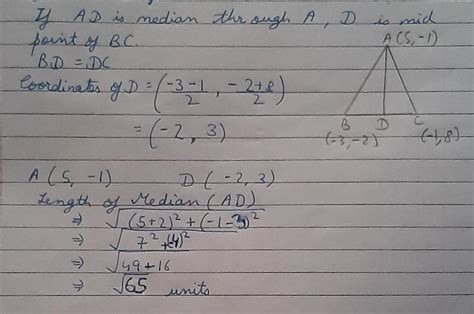 If AD is median through A, D is mid
point of BC.
BD = DC
Coordinates of D = (-3-1/2, -2+8/2)
= (-2, 3)
A(5, -1)
B D C
(-3,-2) (-1,8)
A(5, -1) D(-2, 3)
Length of Median (AD)
⇒ √(5+2)² + (-1-3)²
⇒ √7² + (4)²
⇒ √49+16
⇒ √65 units